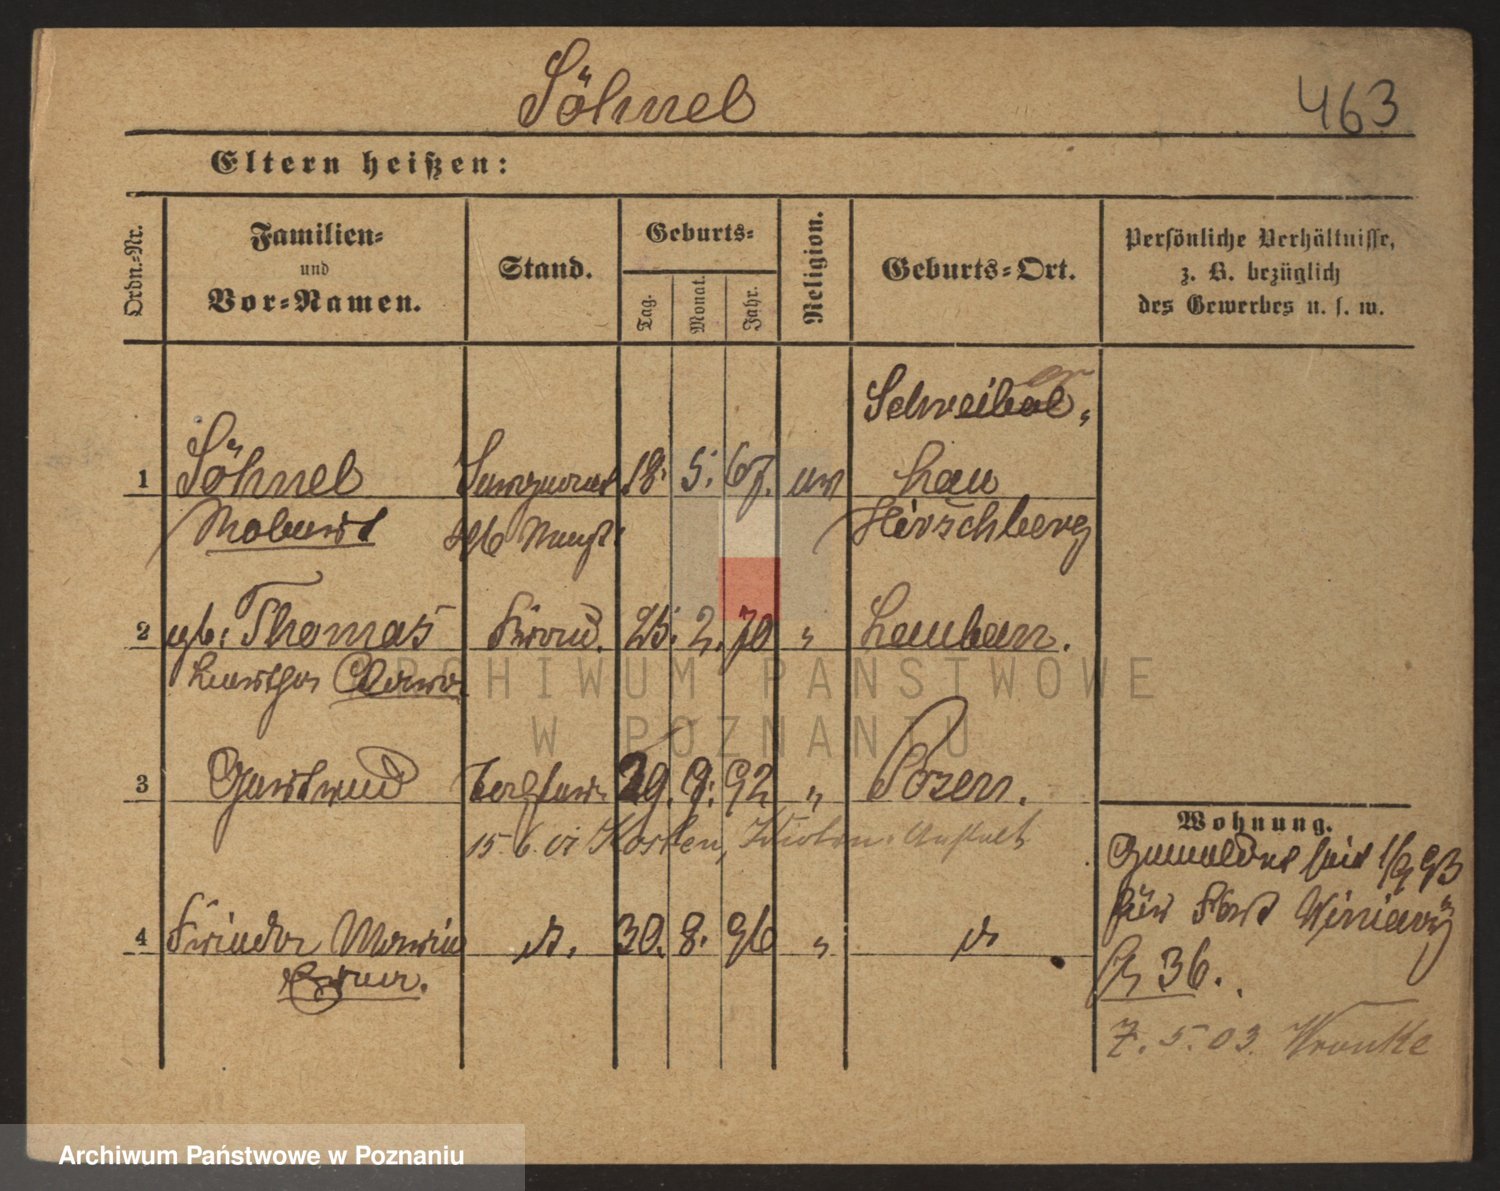 Söhnel
463
Eltern heißen:
Ordn.-Nr.
Familien-
und
Vor-Namen.
Stand.
Geburts-
Tag.
Monat.
Jahr.
Religion.
Geburts-Ort.
Persönliche Verhältnisse,
z. B. bezüglich
des Gewerbes u. s. w.
Schreiber
1 Söhnel Sergeant 18. 5. 67. ev hau
Hirschberg
2 gb. Thomas Frau. 25. 2. 70 " Lauban.
Martha Clara
3 Gertrud Tochter 29. 9. 92 " Posen.
15. 6. 01 Kosten, Idioten-Anstalt
4 Frieda Maria dt. 30. 8. 96 " dt
Erna.
Wohnung.
Gemeldet seit 1/9 93
für Fort Winiary
36.
7. 5. 03. Wronke
ARCHIWUM PAŃSTWOWE
W POZNANIU
Archiwum Państwowe w Poznaniu